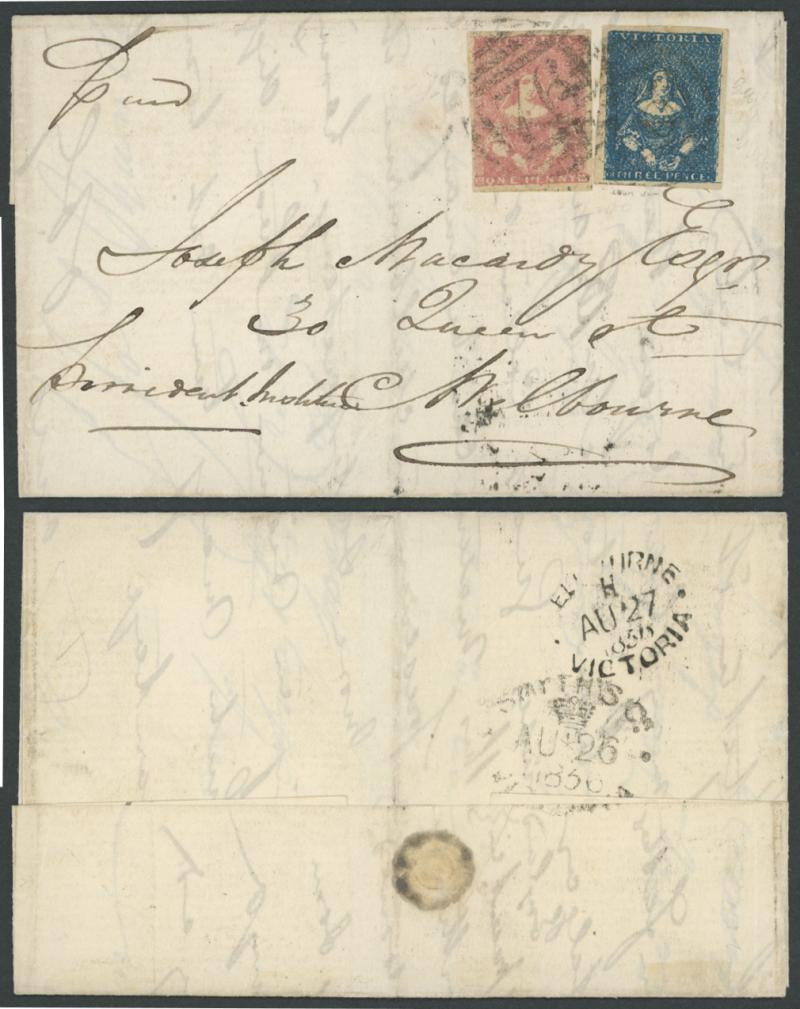 Paid
VICTORIA
ONE PENNY
THREE PENCE
Joseph Macardy Esqr
30 Queen St
Provident Institute Melbourne
ELBOURNE
H
AU 27
1856
VICTORIA
SMYTHES
AU 26
1856